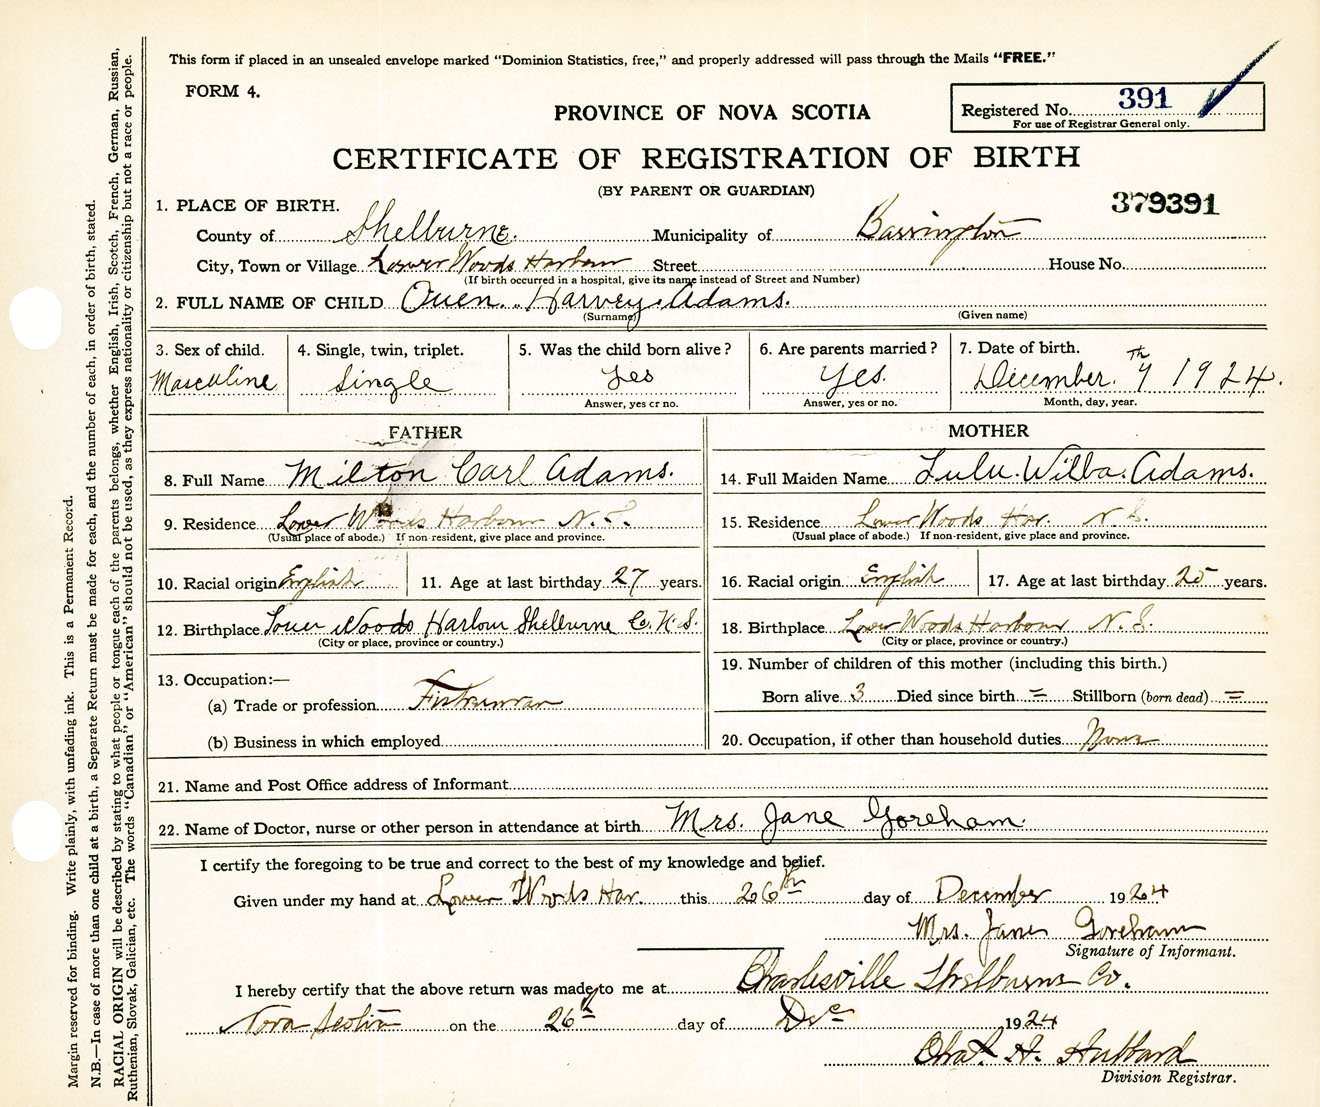 This form if placed in an unsealed envelope marked "Dominion Statistics, free," and properly addressed will pass through the Mails "FREE."
FORM 4.
PROVINCE OF NOVA SCOTIA
Registered No. 391
For use of Registrar General only.
CERTIFICATE OF REGISTRATION OF BIRTH
(BY PARENT OR GUARDIAN)
379391
1. PLACE OF BIRTH.
County of Shelburne. Municipality of Barrington
City, Town or Village Lower Woods Harbour Street House No.
(If birth occurred in a hospital, give its name instead of Street and Number)
2. FULL NAME OF CHILD Owen Harvey Adams.
(Surname) (Given name)
3. Sex of child. 4. Single, twin, triplet. 5. Was the child born alive? 6. Are parents married? 7. Date of birth.
Masculine Single Yes Yes. December. 7th 1924.
Answer, yes or no. Answer, yes or no. Month, day, year.
FATHER MOTHER
8. Full Name Milton Carl Adams. 14. Full Maiden Name Lulu. Wilba. Adams.
9. Residence Lower Woods Harbour N.S. 15. Residence Lower Woods Har. N.S.
(Usual place of abode.) If non-resident, give place and province. (Usual place of abode.) If non-resident, give place and province.
10. Racial origin English 11. Age at last birthday 27 years. 16. Racial origin English 17. Age at last birthday 25 years.
12. Birthplace Lower Woods Harbour Shelburne Co. N.S. 18. Birthplace Lower Woods Harbour N.S.
(City or place, province or country.) (City or place, province or country.)
13. Occupation:— 19. Number of children of this mother (including this birth.)
(a) Trade or profession Fisherman Born alive 3 Died since birth = Stillborn (born dead) =
(b) Business in which employed 20. Occupation, if other than household duties None
21. Name and Post Office address of Informant
22. Name of Doctor, nurse or other person in attendance at birth Mrs. Jane Goreham.
I certify the foregoing to be true and correct to the best of my knowledge and belief.
Given under my hand at Lower Woods Har. this 26th day of December 1924
Mrs. Jane Goreham
Signature of Informant.
I hereby certify that the above return was made to me at Charlesville Shelburne Co.
Nova Scotia on the 26th day of Dec 1924
Chas. H. Hubbard
Division Registrar.
Margin reserved for binding. Write plainly, with unfading ink. This is a Permanent Record.
N.B.—In case of more than one child at a birth, a Separate Return must be made for each, and the number of each, in order of birth, stated.
RACIAL ORIGIN will be described by stating to what people or tongue each of the parents belongs, whether English, Irish, Scotch, French, German, Russian,
Ruthenian, Slovak, Galician, etc. The words "Canadian" or "American" should not be used, as they express nationality or citizenship but not a race or people.